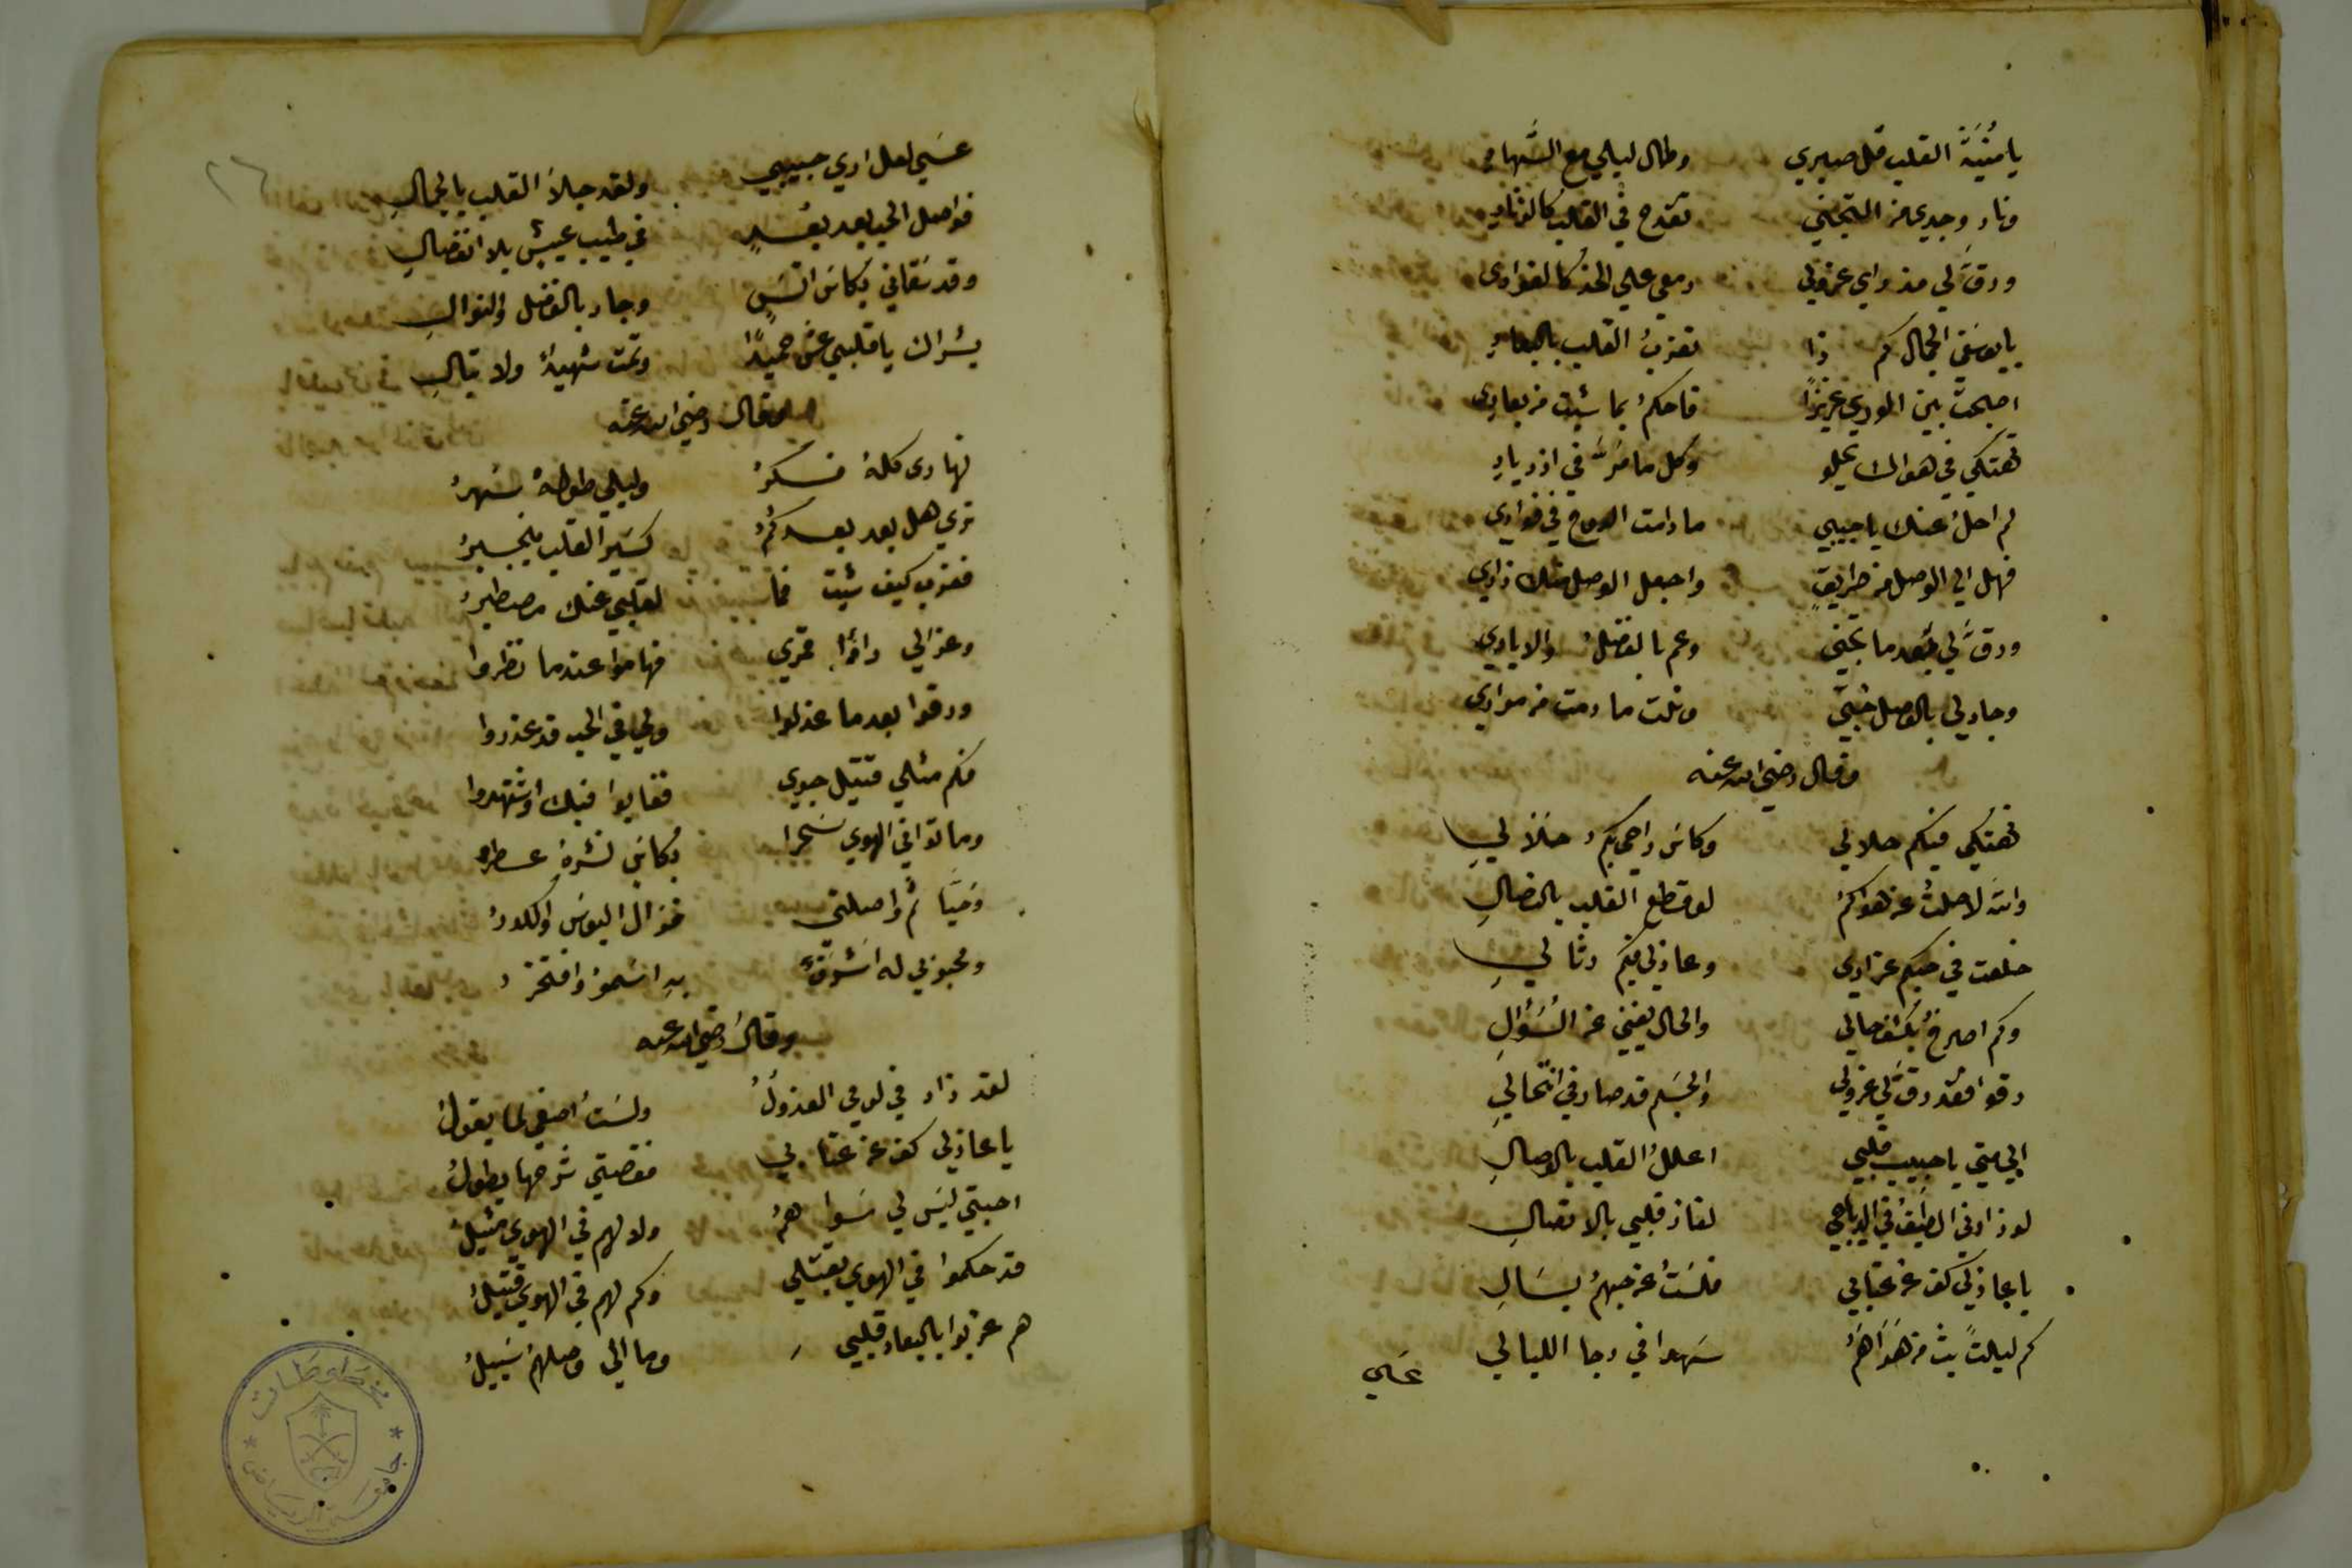 يا مُنْيَةَ القلب قل صبري وطال ليلي مع السُّهادِ
ونار وجدي من التجني تقدح في القلب كالزنادِ
ورقّ لي مذ راى عذولي دمعي على الخد كالغوادى
يا يوسفي الجمال كم ذا تعذبُ القلب بالبعادِ
اصبحت بين الورى عزيزًا فاحكمْ بما شيت من بعادى
تهتكي في هواك يحلو وكل ما مرّ في ازديادِ
لم احلْ عنك يا حبيبي ما دامت الروح في فوادي
فهل الي الوصل من طريقٍ واجعل الوصل منك زادي
ورقّ لي بعد ما تجني وعم بالفضل والايادي
وجاد لي بالوصل حبي ونلت ما رمت من مرادي
وقال رضي الله عنه
تهتكي فيكم حلالي وكاس راحي بكم حَلاَ لي
والله لا حلت عن هواكمْ لو قطع القلب بالنصالِ
خلعت في حبكم عذاري وعاذلي فيكم رثا لي
وكم اصرخ بكشف حالي والحال يغني عن السُّؤالِ
رقوا فقد رقَّ لي عذولي والجسم قد صار في انتحالي
الي متي يا حبيب قلبي اعللُ القلب بالوصالِ
لو زارني الطيف في الدياجي لفاز قلبي بالاتصالِ
يا عاذلي كف عن عتابي فلستُ عن حبهم بسَالِ
كم ليلت بت من هَوَاهُمْ سهدا في دجا الليالي
عسي
٢٦
عسي لعل اري حبيبي ولقد جلاَ القلب بالجمالِ
فواصل الحب بعد بعدٍ في طيب عيش بلا انفصالِ
وقد سقاني بكاس انسٍ وجاد بالفضل والنوالِ
بشراك يا قلبي عش حميدًا ومت شهيدًا ولا تبالِ
وقال رضي الله عنه
نهارى كلهُ فكرُ وليلي طولهُ سهرُ
تري هل بعد بعدكمُ كسير القلب ينجبرُ
فعذب كيف شيت فما لقلبي عنك مصطبرُ
وعذالي راوا قمري فهاموا عندما نظروا
ورقوا بعد ما عذلوا ولي في الحب قد عذروا
فكم مثلي قتيل جوي ففابوا فيك او شتهروا
وما توا في الهوي سَحَرا بكاسٍ نشرهُ عطرُ
وحيَّا ثم واصلني فزال البوس والكدرُ
ومحبوبي له اشرقتْ به اسمو وافتخرُ
وقال رضي الله عنه
لقد زاد في لومي العذولُ ولستُ اصغي لما يقولُ
يا عاذلي كف عن عتابي فقصتي شرحها يطولُ
احبتي ليس لي سواهمُ ولا لهم في الهوي مثيلُ
قد حكموا في الهوي بقتلي وكم لهم في الهوي قتيلُ
هم عذبوا بالبعاد قلبي وما الي وصلهمْ سَبيلُ
مخطوطات
جامعة الرياض